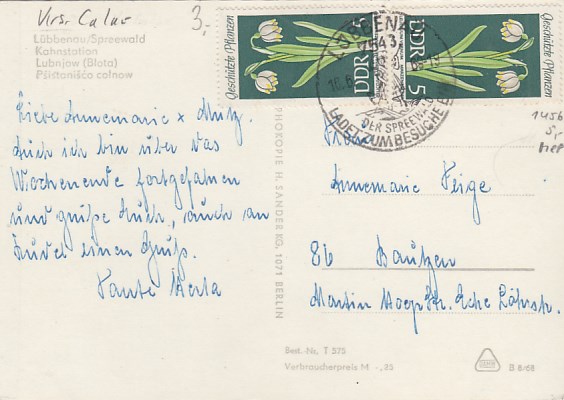 Krs. Calau
3,-
Lübbenau/Spreewald
Kahnstation
Lubnjow (Blota)
Pśistanišćo cołnow
Liebe Annemarie + Mutz.
Auch ich bin über das
Wochenende fortgefahren
und grüße Euch, auch an
einen Gruß.
Tante Herta
PHOKOPIE H. SANDER KG, 1071 BERLIN
Geschützte Pflanzen
DDR 5
DDR 5
Geschützte Pflanzen
LÜBBENAU
7543
DER SPREEWALD
LADET ZUM BESUCHE EIN
1456
5,-
Annemarie Feige
86 Bautzen
Martin Hoop Str. Ecke
Best.-Nr. T 575
Verbraucherpreis M -,25
B 8/68